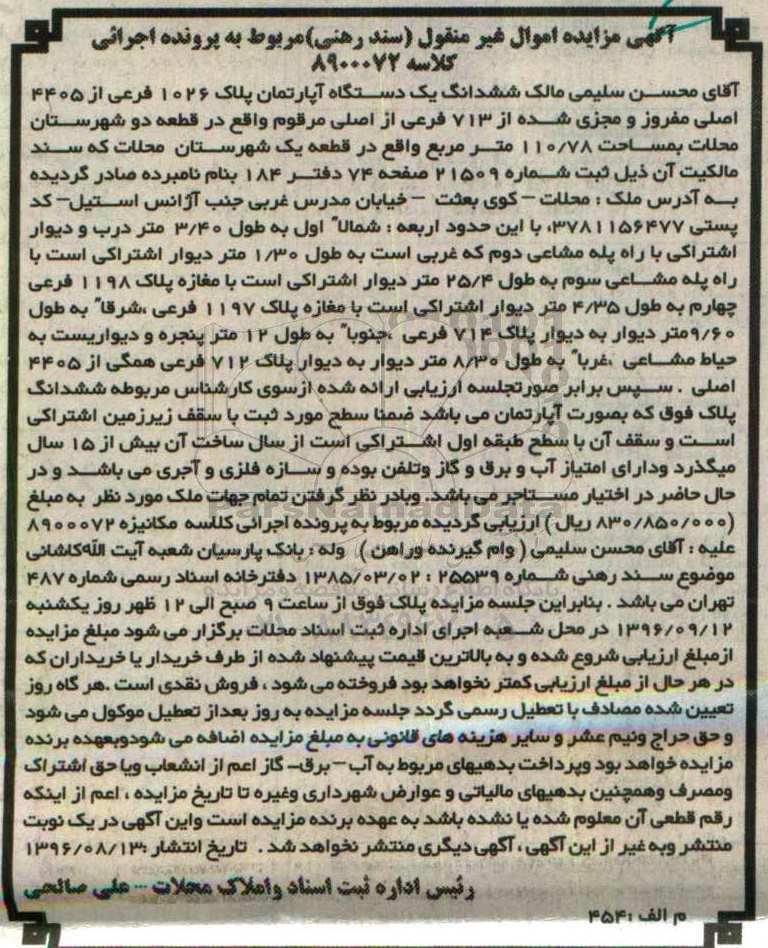 آگهی مزایده اموال غیر منقول (سند رهنی) مربوط به پرونده اجرائی
کلاسه ۸۹۰۰۰۷۲
آقای محسن سلیمی مالک ششدانگ یک دستگاه آپارتمان پلاک ۱۰۲۶ فرعی از ۴۴۰۵
اصلی مفروز و مجزی شده از ۷۱۳ فرعی از اصلی مرقوم واقع در قطعه دو شهرستان
محلات بمساحت ۱۱۰/۷۸ متر مربع واقع در قطعه یک شهرستان محلات که سند
مالکیت آن ذیل ثبت شماره ۲۱۵۰۹ صفحه ۷۴ دفتر ۱۸۴ بنام نامبرده صادر گردیده
به آدرس ملک : محلات – کوی بعثت – خیابان مدرس غربی جنب آژانس استیل– کد
پستی ۳۷۸۱۱۵۶۴۷۷، با این حدود اربعه : شمالا" اول به طول ۳/۴۰ متر درب و دیوار
اشتراکی با راه پله مشاعی دوم که غربی است به طول ۱/۳۰ متر دیوار اشتراکی است با
راه پله مشاعی سوم به طول ۲۵/۴ متر دیوار اشتراکی است با مغازه پلاک ۱۱۹۸ فرعی
چهارم به طول ۴/۳۵ متر دیوار اشتراکی است با مغازه پلاک ۱۱۹۷ فرعی ،شرقا" به طول
۹/۶۰متر دیوار به دیوار پلاک ۷۱۴ فرعی ،جنوبا" به طول ۱۲ متر پنجره و دیواریست به
حیاط مشاعی ،غربا" به طول ۸/۳۰ متر دیوار به دیوار پلاک ۷۱۲ فرعی همگی از ۴۴۰۵
اصلی . سپس برابر صورتجلسه ارزیابی ارائه شده ازسوی کارشناس مربوطه ششدانگ
پلاک فوق که بصورت آپارتمان می باشد ضمنا سطح مورد ثبت با سقف زیرزمین اشتراکی
است و سقف آن با سطح طبقه اول اشتراکی است از سال ساخت آن بیش از ۱۵ سال
میگذرد ودارای امتیاز آب و برق و گاز وتلفن بوده و سازه فلزی و آجری می باشد و در
حال حاضر در اختیار مستاجر می باشد. وبادر نظر گرفتن تمام جهات ملک مورد نظر به مبلغ
(۸۳۰/۸۵۰/۰۰۰ ریال) ارزیابی گردیده مربوط به پرونده اجرائی کلاسه مکانیزه ۸۹۰۰۰۷۲
علیه : آقای محسن سلیمی ( وام گیرنده وراهن ) وله : بانک پارسیان شعبه آیت الله‌کاشانی
موضوع سند رهنی شماره ۲۵۵۳۹ : ۱۳۸۵/۰۳/۰۲ دفترخانه اسناد رسمی شماره ۴۸۷
تهران می باشد . بنابراین جلسه مزایده پلاک فوق از ساعت ۹ صبح الی ۱۲ ظهر روز یکشنبه
۱۳۹۶/۰۹/۱۲ در محل شعبه اجرای اداره ثبت اسناد محلات برگزار می شود مبلغ مزایده
ازمبلغ ارزیابی شروع شده و به بالاترین قیمت پیشنهاد شده از طرف خریدار یا خریداران که
در هر حال از مبلغ ارزیابی کمتر نخواهد بود فروخته می شود ، فروش نقدی است .هر گاه روز
تعیین شده مصادف با تعطیل رسمی گردد جلسه مزایده به روز بعداز تعطیل موکول می شود
و حق حراج ونیم عشر و سایر هزینه های قانونی به مبلغ مزایده اضافه می شودوبعهده برنده
مزایده خواهد بود وپرداخت بدهیهای مربوط به آب – برق– گاز اعم از انشعاب ویا حق اشتراک
ومصرف وهمچنین بدهیهای مالیاتی و عوارض شهرداری وغیره تا تاریخ مزایده ، اعم از اینکه
رقم قطعی آن معلوم شده یا نشده باشد به عهده برنده مزایده است واین آگهی در یک نوبت
منتشر وبه غیر از این آگهی ، آگهی دیگری منتشر نخواهد شد . تاریخ انتشار :۱۳۹۶/۰۸/۱۳
رئیس اداره ثبت اسناد واملاک محلات – علی صالحی
م الف :۴۵۴
ParsNamadData